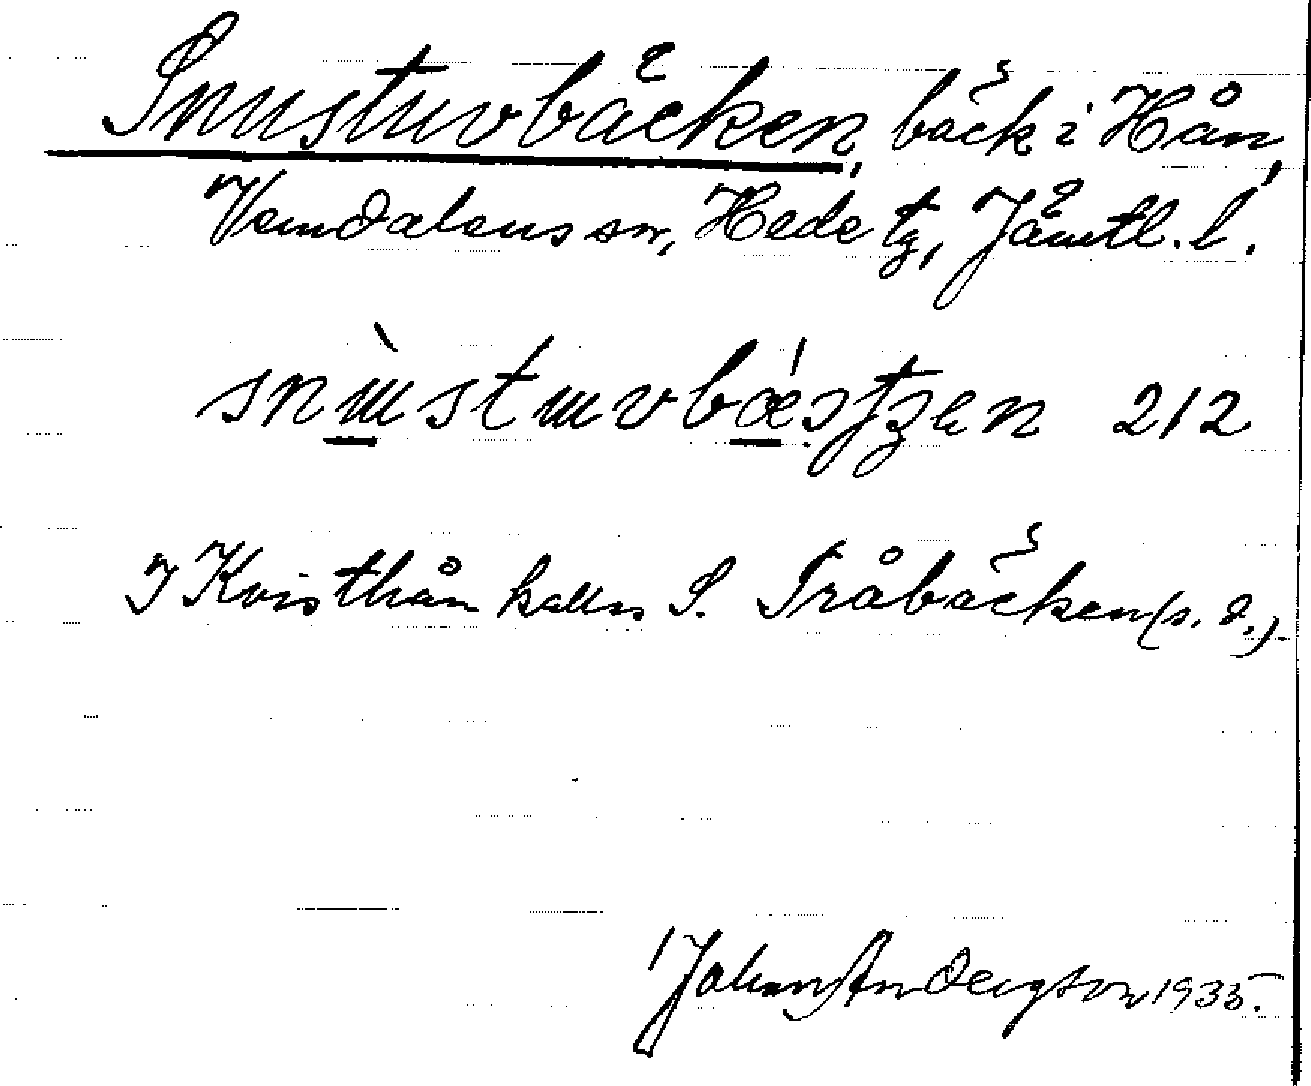 Snustuvbäcken, bäck i Hån,
Vemdalens sn, Hede tg, Jämtl. l.
212
I Kvisthån kallas S. Tråbäcken (s. d.).
Johan Andersson 1935.